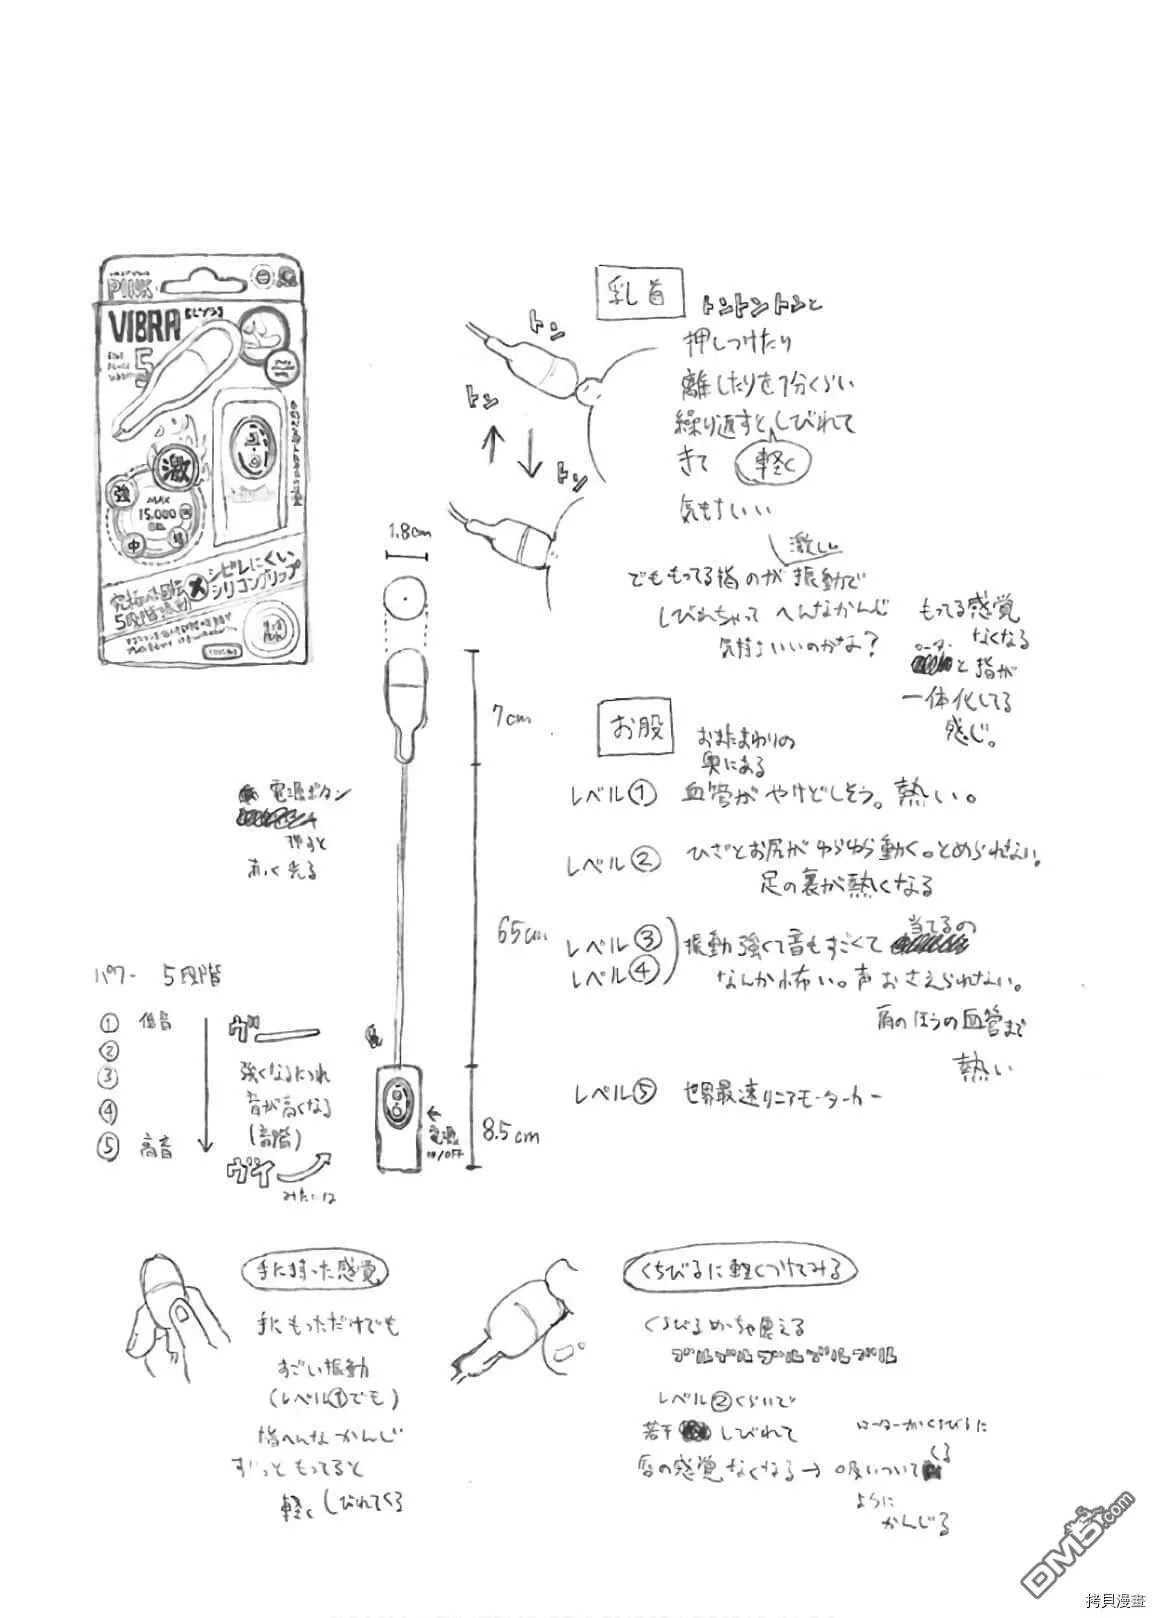 PINK
VIBRA
5
激
強
MAX
15.000
中
弱
究極の5回転
5段階振動
シビレにくい
シリコングリップ
乳首
トン
トン
トン
トントントンと
押しつけたり
離したりを1分くらい
繰り返すとしびれて
きて 軽く
気もちいい
激しい
でももってる指のが振動で
しびれちゃって へんなかんじ
気持ちいいのかな?
もってる感覚
なくなる
と指が
一体化してる
感じ。
1.8cm
7cm
65cm
8.5cm
電源
ON/OFF
電源ボタン
押すと
あかく光る
パワー 5段階
① 低音
②
③
④
⑤ 高音
ヴー
強くなるにつれ
音が高くなる
(音階)
ヴイ
みたいな
お股
おまたまわりの
奥にある
レベル① 血管がやけどしそう。熱い。
レベル② ひざとお尻がゆらゆら動く。とめられない。
足の裏が熱くなる
レベル③
レベル④
振動強くて音もすごくて 当てるの
なんか怖い。声おさえられない。
肩のほうの血管まで
熱い
レベル⑤ 世界最速リニアモーターカー
手に持った感覚
手にもっただけでも
すごい振動
(レベル①でも)
指へんなかんじ
ずっともってると
軽くしびれてくる
くちびるに軽くつけてみる
くちびるめっちゃ震える
ブルブルブルブルブル
レベル②くらいで
若干 しびれて
唇の感覚なくなる→
ローターがくちびるに
吸いついてくる
ように
かんじる
DM5.com
拷貝漫畫